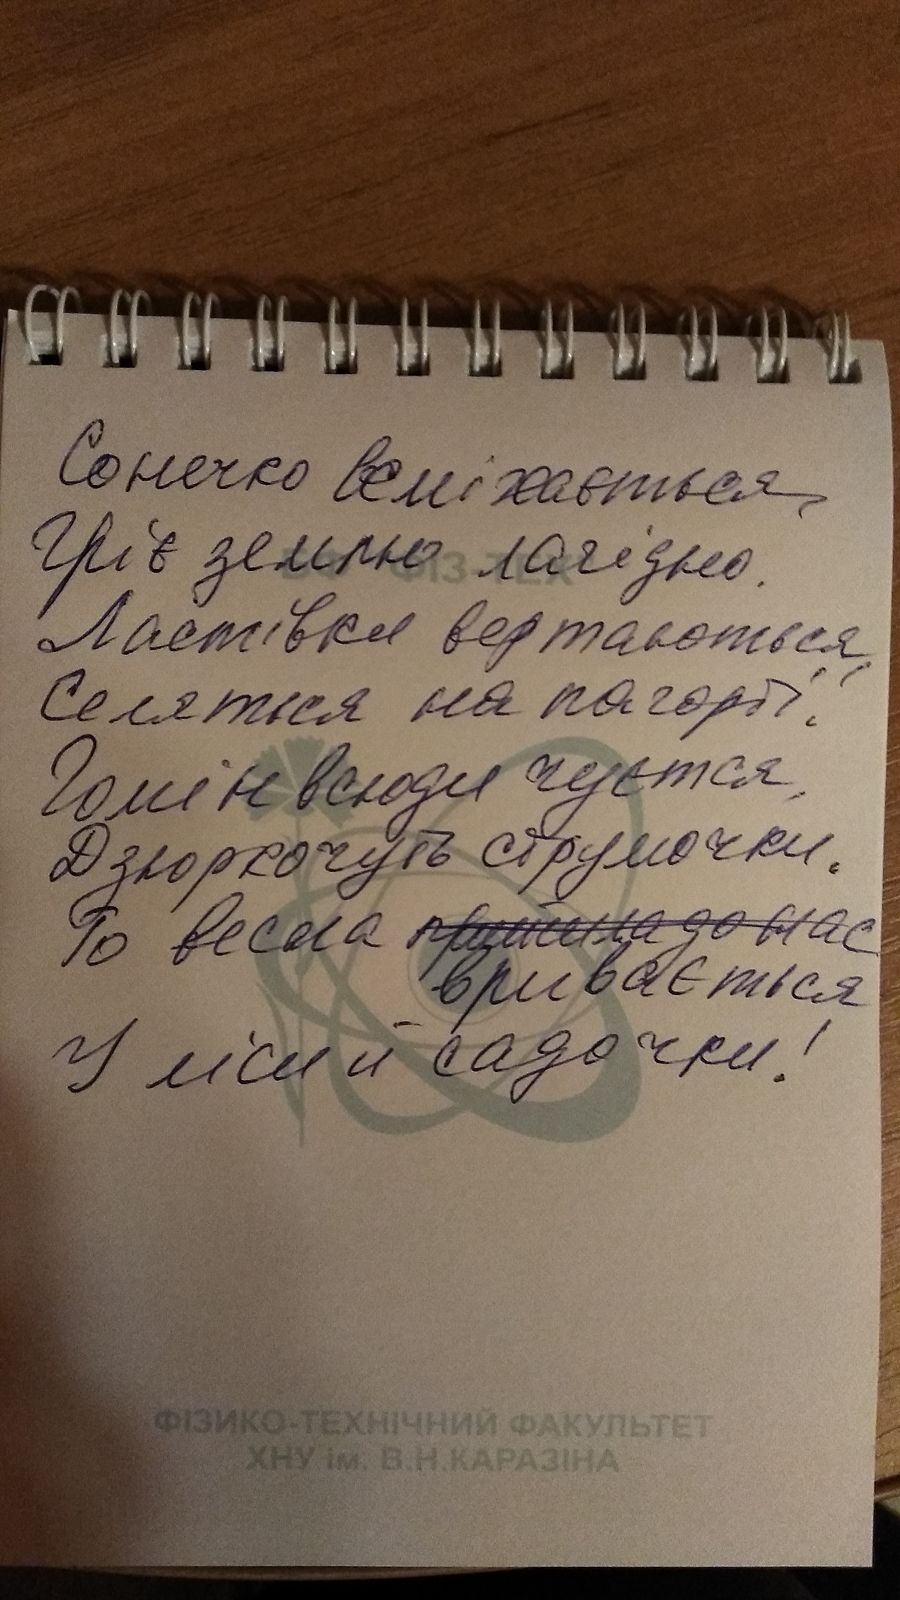 Сонечко всміхається,
Гріє землю лагідно.
ФІЗ-ТЕХ
Ластівки вертаються,
Селяться на пагорбі!
Гомін всюди чується,
Дзюркочуть струмочки.
То весна прийшла до нас
вривається
У ліси й садочки!
ФІЗИКО-ТЕХНІЧНИЙ ФАКУЛЬТЕТ
ХНУ ім. В.Н.КАРАЗІНА